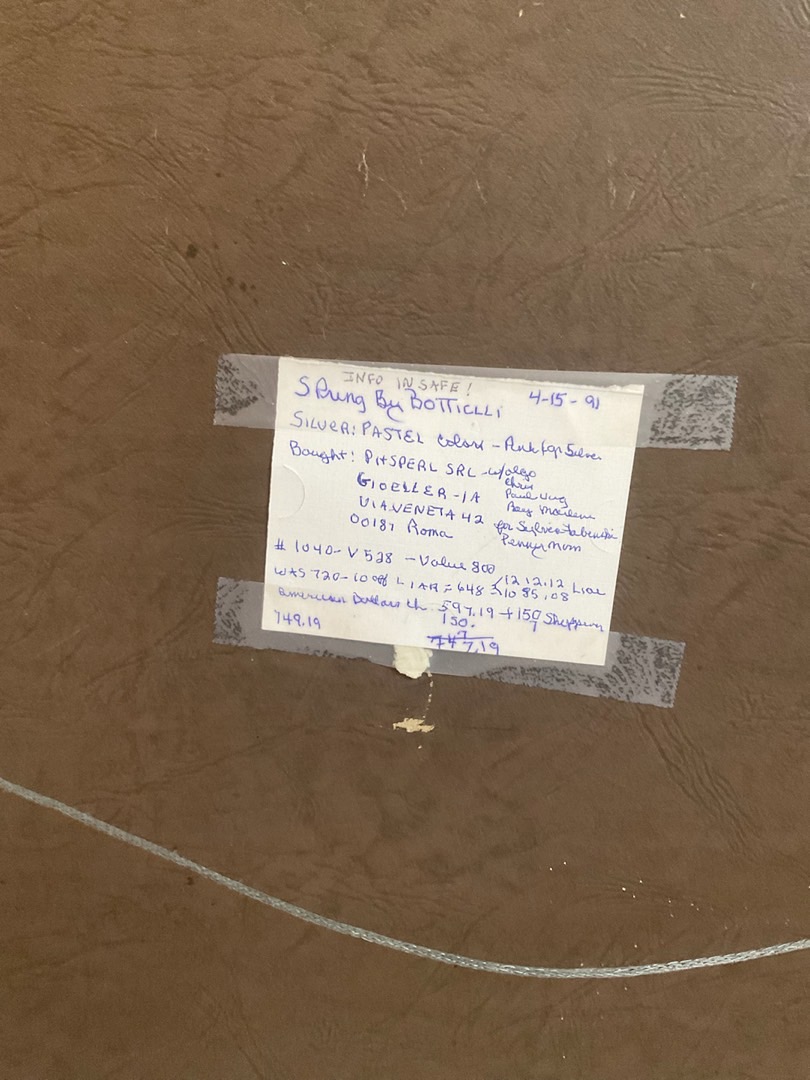 INFO IN SAFE!
Spring By BOTTICLLI 4-15-91
SILVER: PASTEL colors - Pink top Silver
Bought: PITSPERL SRL - w/olga
GIOELLER-IA Chris
VIA VENETA 42 Bey Marlene
00187 Roma for Sylvia
Penny mom
# 1040-V 528 - Value 800
WAS 720-10% LIAR = 648 121212 Liar
1085.08
American Dollars ch. 597.19 + 150 Shipping
749.19 150. 7
7
747.19